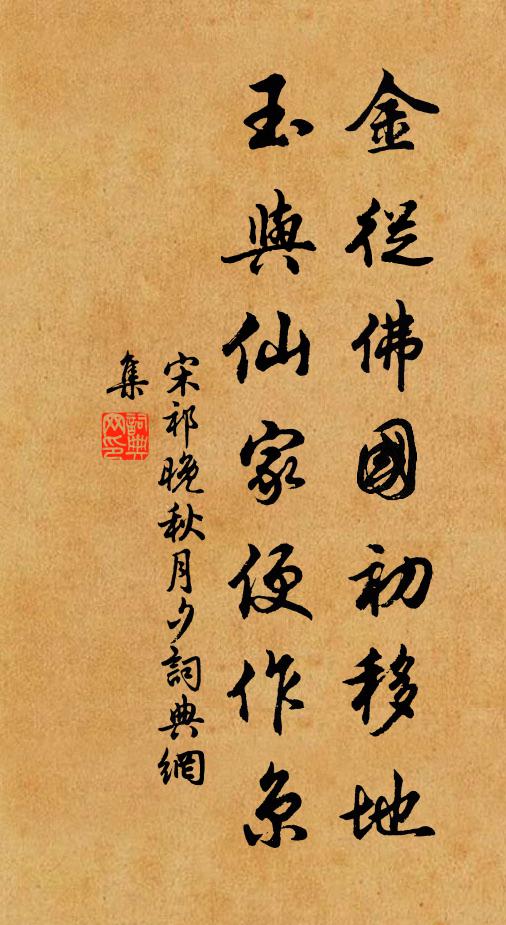 金從佛國初移地
玉與仙家便作京
宋祁晚秋月夕詞典網
集
詞典
网印